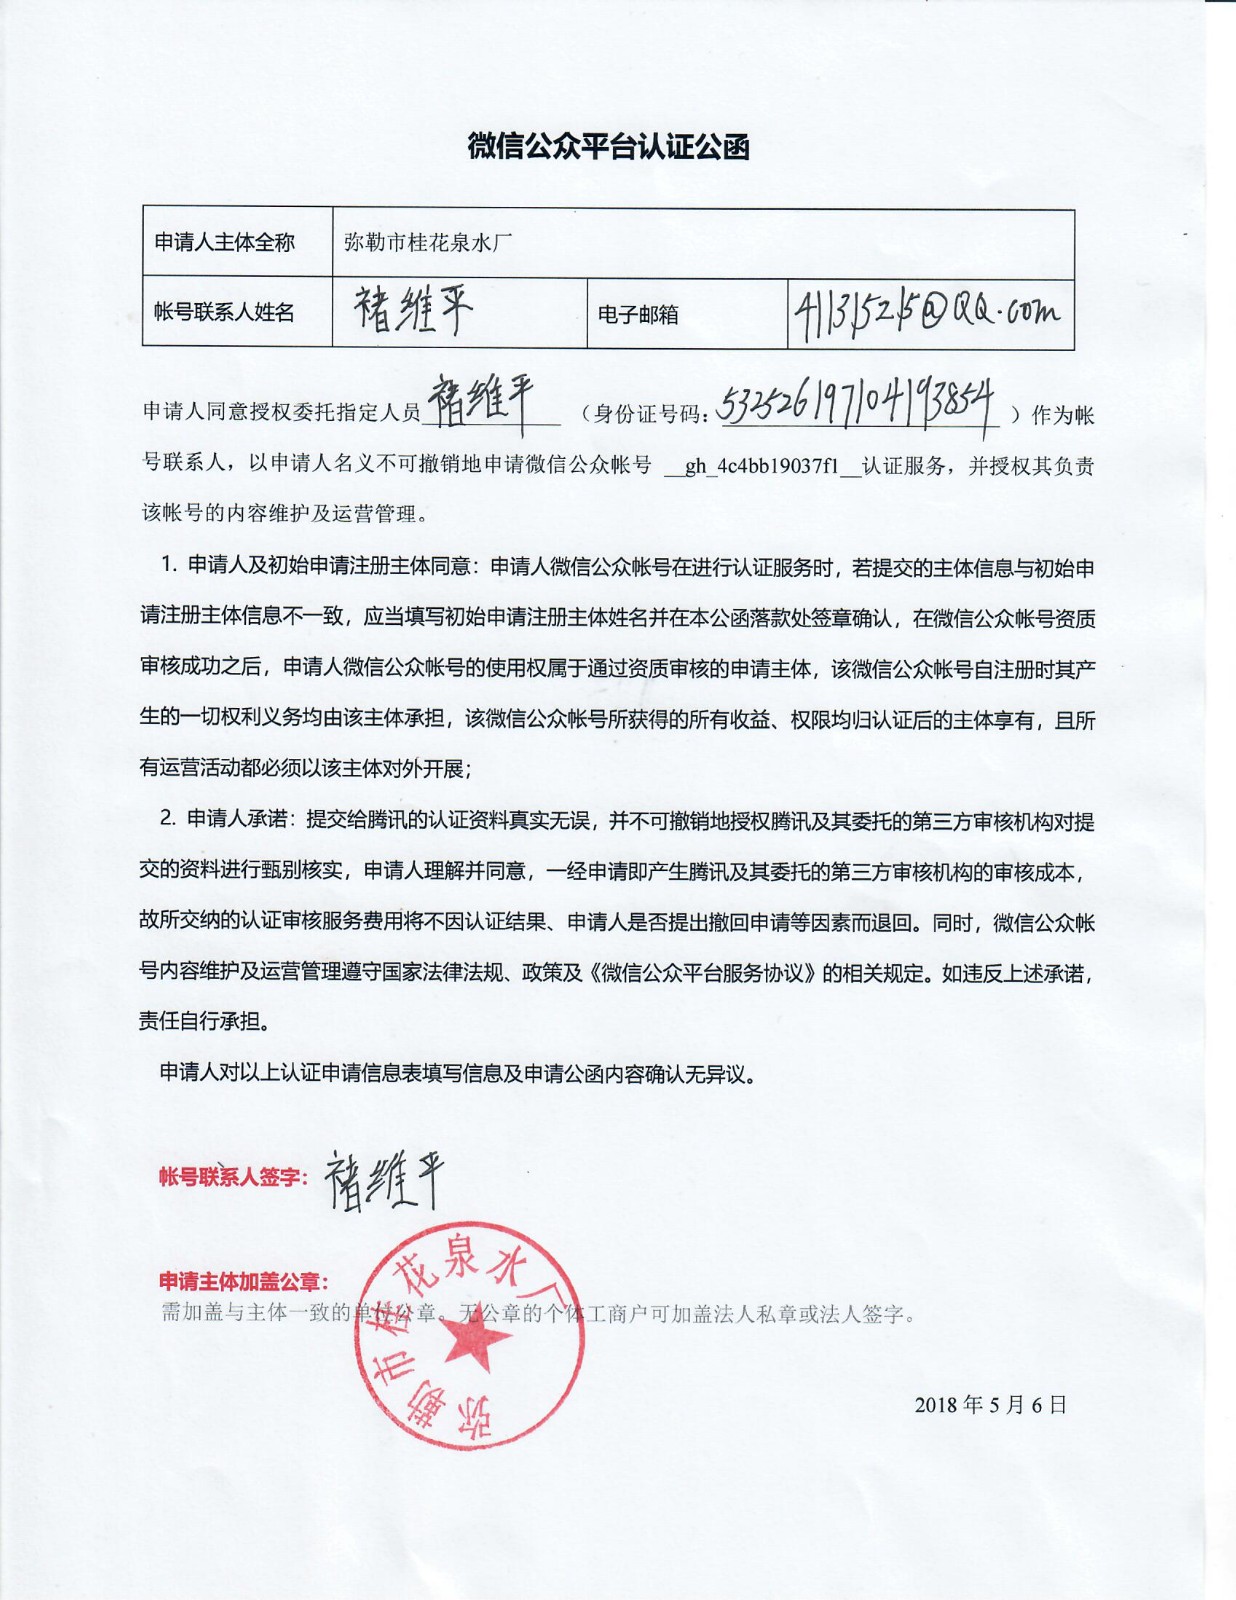 微信公众平台认证公函
申请人主体全称 弥勒市桂花泉水厂
帐号联系人姓名 褚维平 电子邮箱 41131525@QQ.com
申请人同意授权委托指定人员 褚维平 （身份证号码：532526197104193854 ）作为帐
号联系人，以申请人名义不可撤销地申请微信公众帐号 __gh_4c4bb19037f1__认证服务，并授权其负责
该帐号的内容维护及运营管理。
1. 申请人及初始申请注册主体同意：申请人微信公众帐号在进行认证服务时，若提交的主体信息与初始申
请注册主体信息不一致，应当填写初始申请注册主体姓名并在本公函落款处签章确认，在微信公众帐号资质
审核成功之后，申请人微信公众帐号的使用权属于通过资质审核的申请主体，该微信公众帐号自注册时其产
生的一切权利义务均由该主体承担，该微信公众帐号所获得的所有收益、权限均归认证后的主体享有，且所
有运营活动都必须以该主体对外开展；
2. 申请人承诺：提交给腾讯的认证资料真实无误，并不可撤销地授权腾讯及其委托的第三方审核机构对提
交的资料进行甄别核实，申请人理解并同意，一经申请即产生腾讯及其委托的第三方审核机构的审核成本，
故所交纳的认证审核服务费用将不因认证结果、申请人是否提出撤回申请等因素而退回。同时，微信公众帐
号内容维护及运营管理遵守国家法律法规、政策及《微信公众平台服务协议》的相关规定。如违反上述承诺，
责任自行承担。
申请人对以上认证申请信息表填写信息及申请公函内容确认无异议。
帐号联系人签字： 褚维平
申请主体加盖公章：
需加盖与主体一致的单位公章。无公章的个体工商户可加盖法人私章或法人签字。
弥勒市桂花泉水厂
2018 年 5 月 6 日